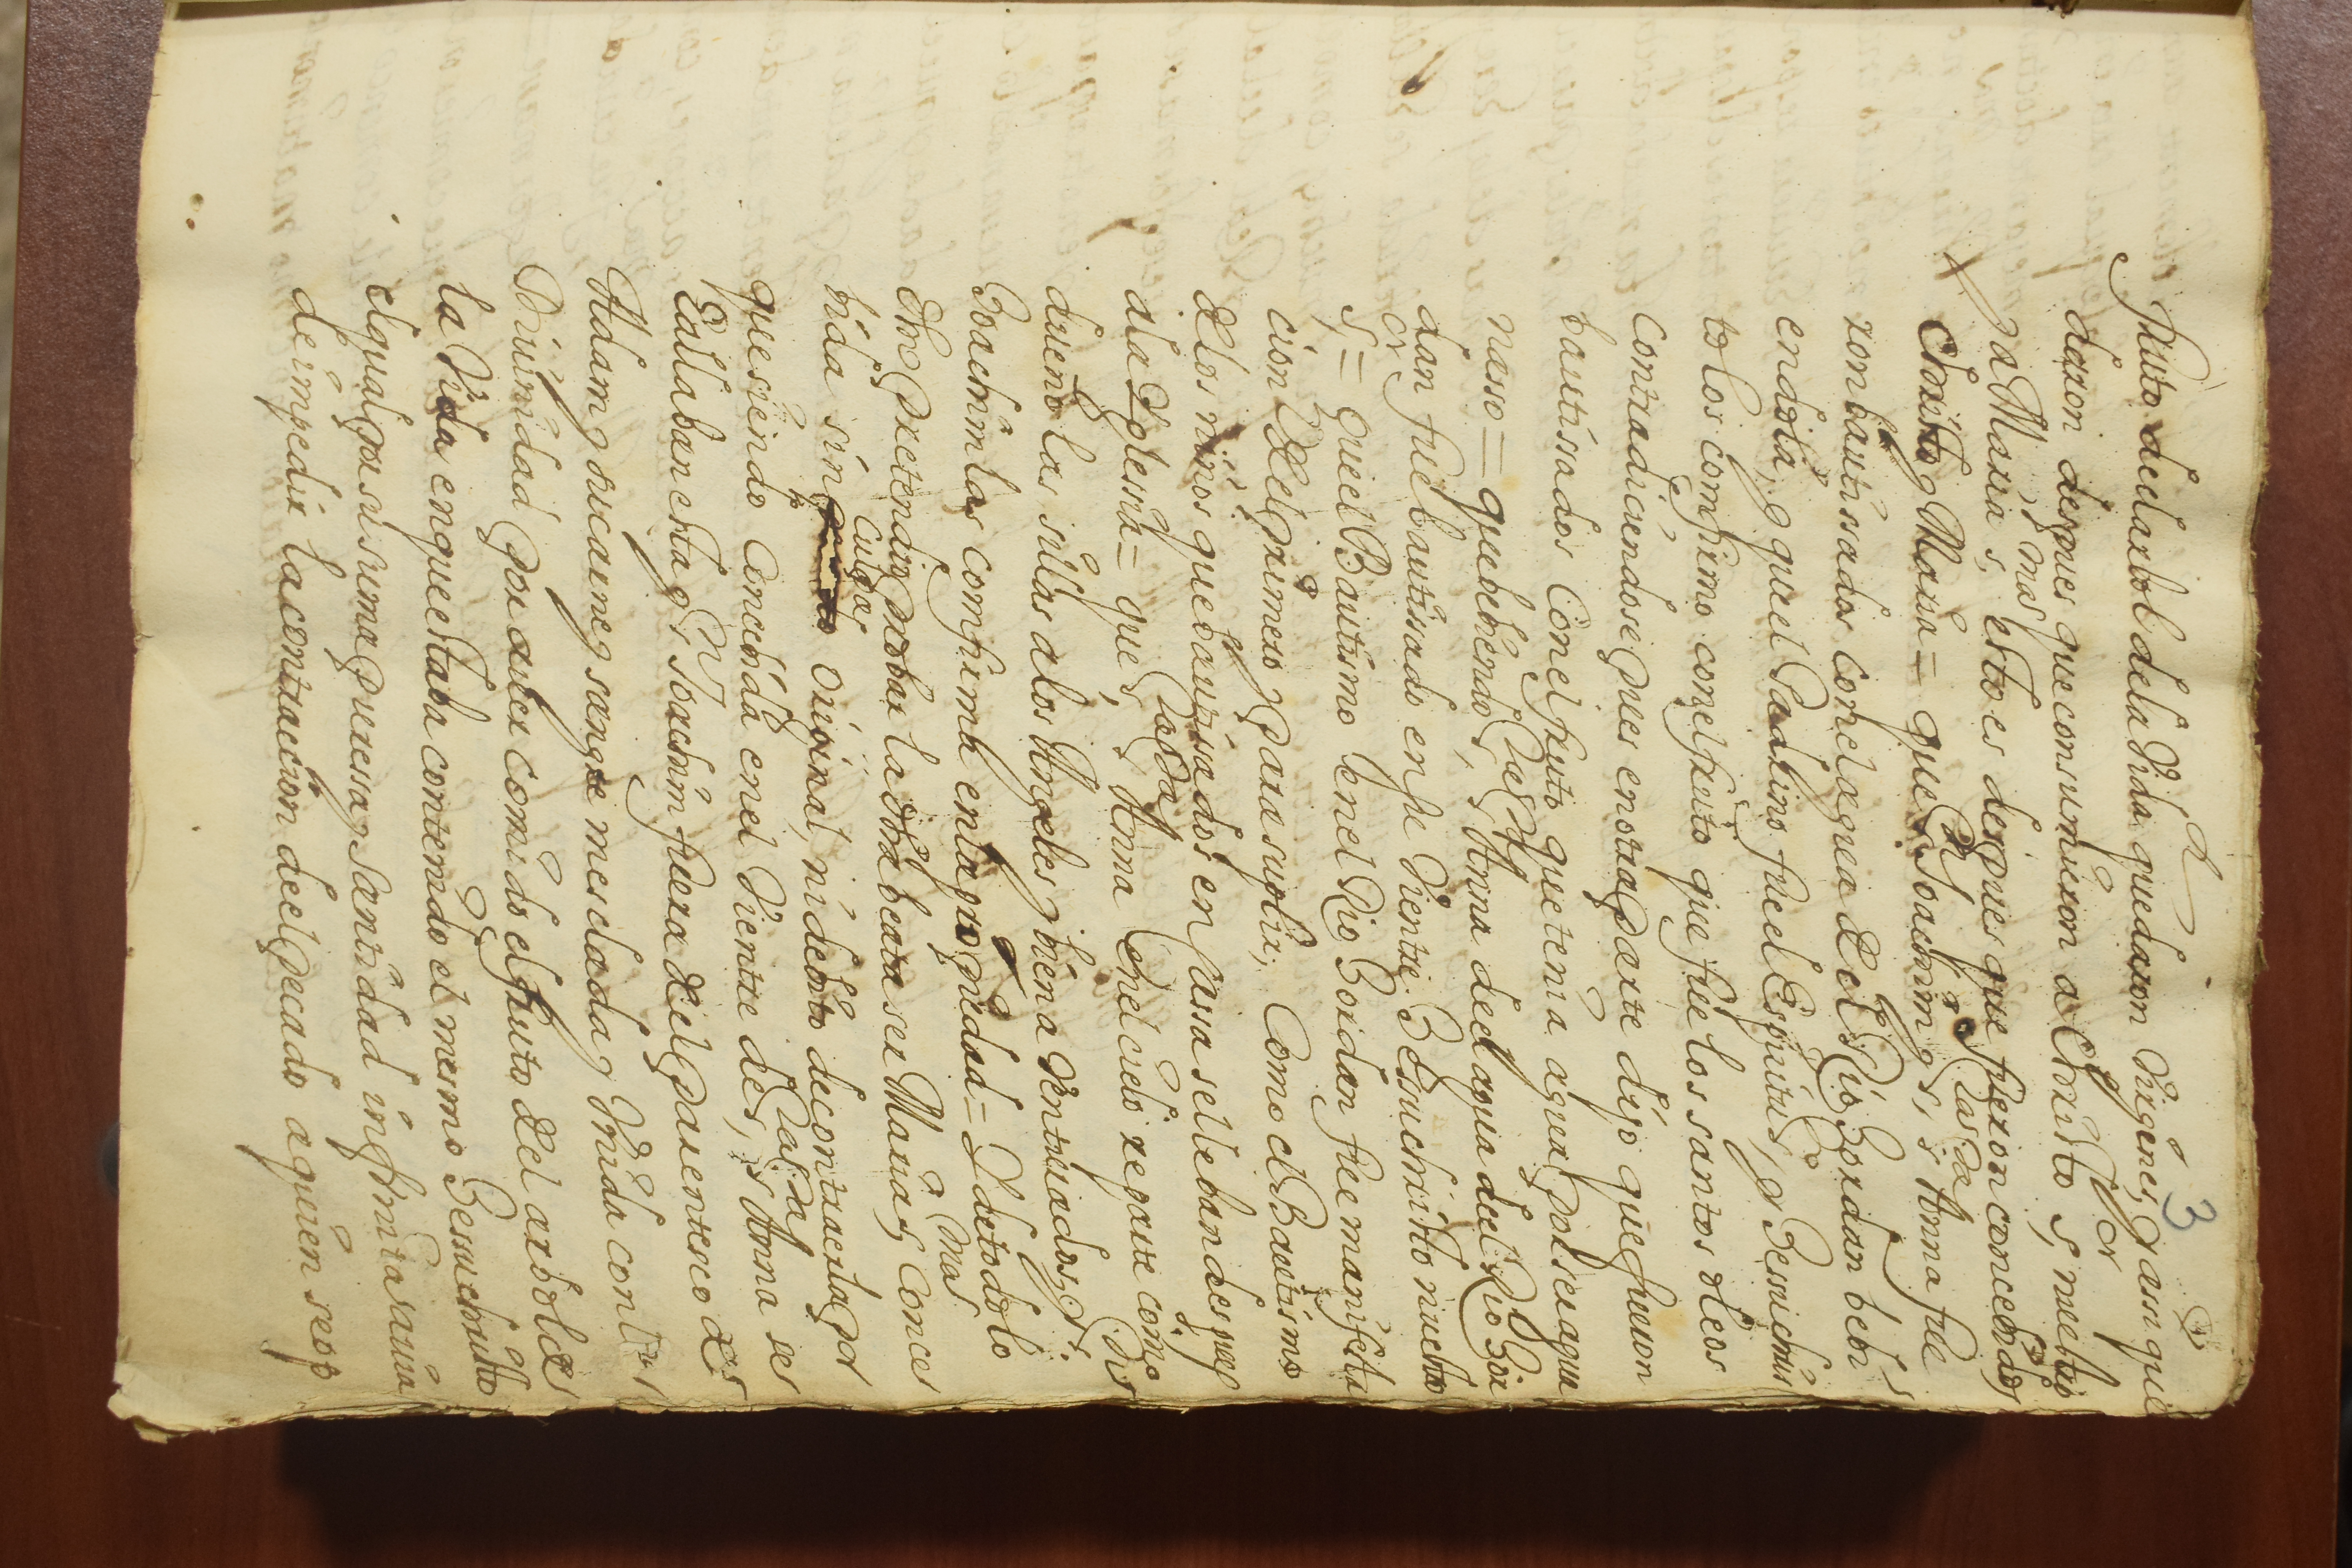 3
fruto deel arbol dela Vida quedaron Virgines, y assi que
daron despues que consumieron a Christo, s, metiò
pa Maria s, esto es despues que fueron concebidos
mas
Christo y Maria = que s, Joachim, y s, Anna fue
ron bautissados con el agua de el Rio Jordan bebi
endola, y que el Padrino fue el Espiritu, y Jessuchris
to los confirmo con el fruto que fue los santos oleos
contradiciendose pues en otra parte dijo que fueron
bautissados con el fruto que tenia agua por ser agua
nasso = que bebiendo s, Anna deel agua deel Rio Jor
dan fue bautissado en su Vientre Jesuchristo nuestro
s, = que el Bautismo en el Rio Jordan fue manifesta
cion deel primero y para suplir, como el Bautismo
delos niños que bautissados en cassa se lleban despues
ala Yglesia = que s, Anna en el cielo reparte como
dueño las sillas alos Angeles y bien aventurados y s,
Joachim las confirma en la propiedad = Y de todo lo
dho pretendio probar la dha beata ser Maria s, conce
mas
bida sin culpa original, ni debito de contraerla por
que siendo concebida en el Vientre de s, Anna se
allaba esta y s, Joachim fuera deel parentesco de
Adam y su carne y sangre mesclada y Vnida con la
Divinidad por aber comido el fruto del arbol de
la Vida en que estaba contenido el mesmo Jessuchristo
el qual por su suma pureza y santidad infinita abia
de impedir la contraccion deel pecado a quien se op